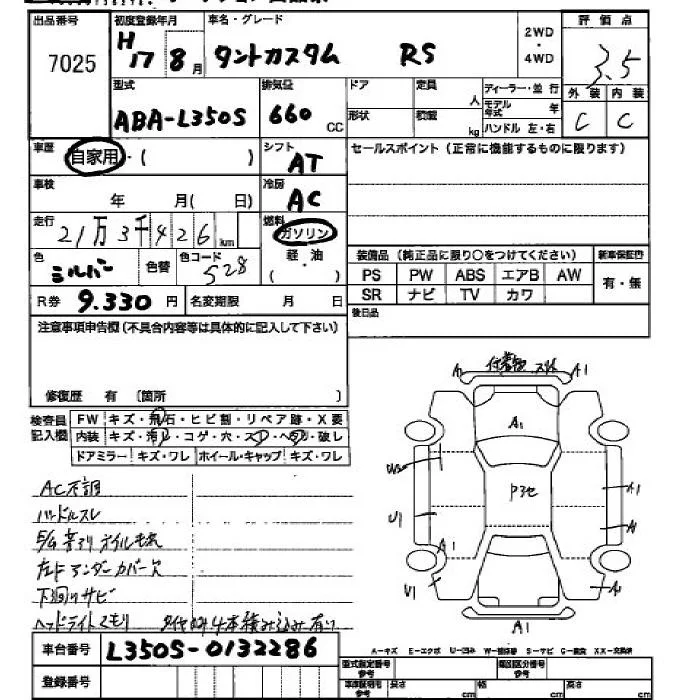 出品番号
7025
初度登録年月
H17 8月
車名・グレード
タントカスタム RS
2WD
・
4WD
評価点
3.5
型式
ABA-L350S
排気量
660 CC
ドア
定員
人
形状
積載
kg
ディーラー・並行
モデル年式 年
ハンドル 左・右
外装 内装
C C
車歴
自家用・( )
シフト
AT
セールスポイント(正常に機能するものに限ります)
車検
年 月( 日)
冷房
AC
走行
21万3千426km
燃料
ガソリン
軽・油
( )
色
シルバー
色替
色コード
S28
装備品(純正品に限り○をつけてください)
新車保証書
PS PW ABS エアB AW
有・無
SR ナビ TV カワ
R券 9.330円
名変期限 月 日
後日品
注意事項申告欄(不具合内容等は具体的に記入して下さい)
修復歴 有 〔箇所 〕
検査員
記入欄
FW キズ・飛石・ヒビ割・リペア跡・X要
内装 キズ・汚レ・コゲ・穴・スレ・ヘタリ・破レ
ドアミラー キズ・ワレ ホイール・キャップ キズ・ワレ
AC不調
ハンドルスレ
左Fアンダーカバー欠
下廻りサビ
ヘッドライトスモリ
付着物 スリキズ
A1
A1
W2
U1
P3セ
A1
A1
A1
U1
A1
A1
車台番号
L350S-0132286
登録番号
A-キズ E-エクボ U-凹み W-補修跡 S-サビ C-腐食 XX-交換済
型式指定番号
参考
類別区分番号
参考
車庫証明用
参考
長さ cm
幅 cm
高さ cm